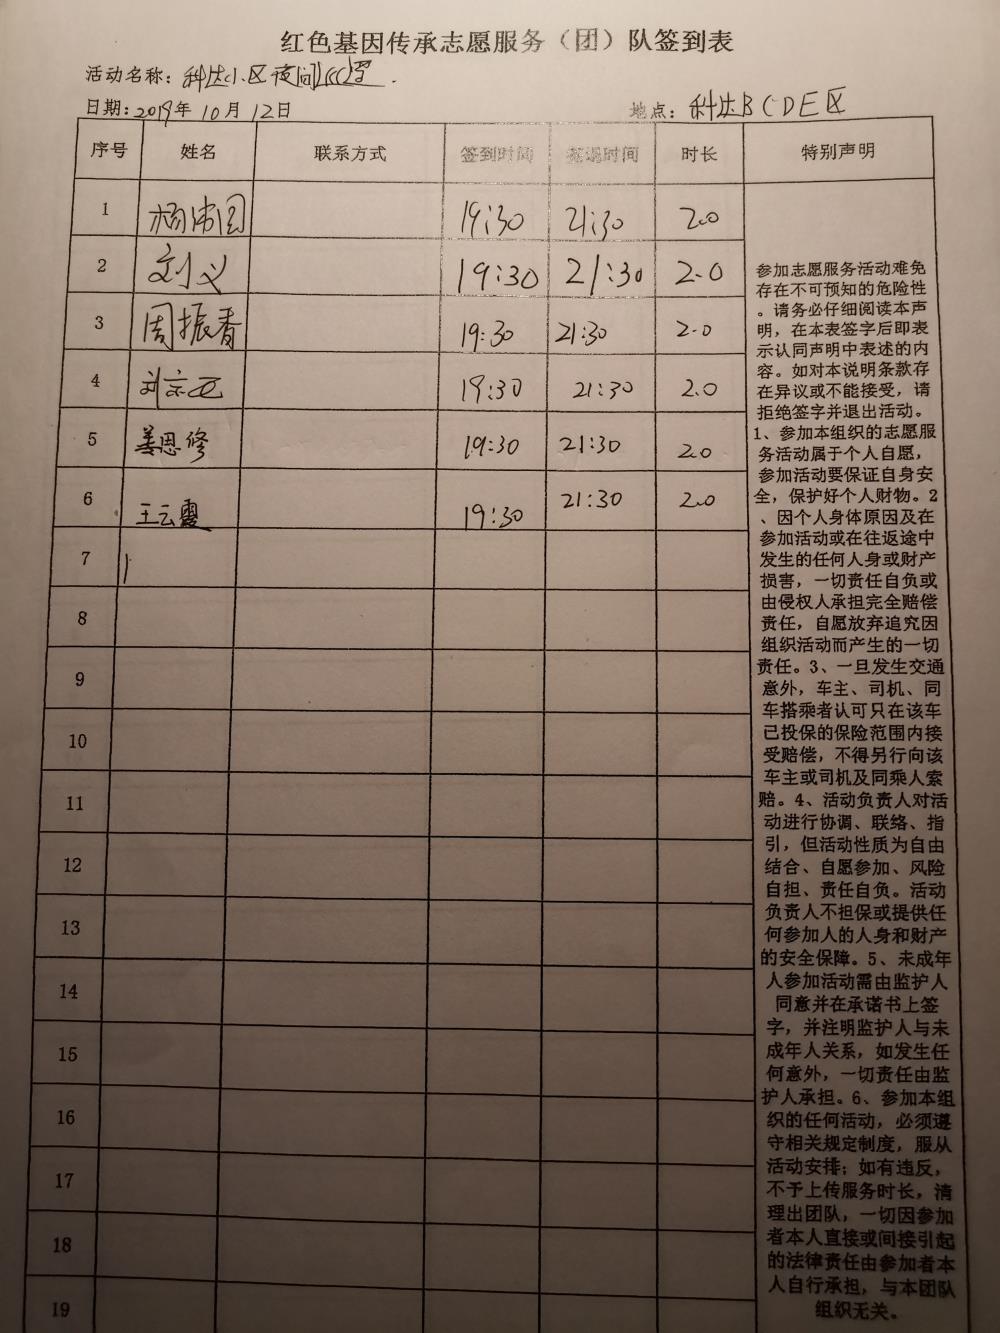 红色基因传承志愿服务（团）队签到表
活动名称：科达小区夜间巡逻.
日期：2019年10月12日 地点：科达BCDE区
序号 姓名 联系方式 签到时间 签退时间 时长 特别声明
1 杨沛园 19:30 21:30 2.0
2 刘义 19:30 21:30 2.0
3 周振香 19:30 21:30 2.0
4 刘宗亚 19:30 21:30 2.0
5 姜恩修 19:30 21:30 2.0
6 王云霞 19:30 21:30 2.0
7
8
9
10
11
12
13
14
15
16
17
18
19
参加志愿服务活动难免
存在不可预知的危险性
。请务必仔细阅读本声
明，在本表签字后即表
示认同声明中表述的内
容。如对本说明条款存
在异议或不能接受，请
拒绝签字并退出活动。
1、参加本组织的志愿服
务活动属于个人自愿，
参加活动要保证自身安
全，保护好个人财物。2
、因个人身体原因及在
参加活动或在往返途中
发生的任何人身或财产
损害，一切责任自负或
由侵权人承担完全赔偿
责任，自愿放弃追究因
组织活动而产生的一切
责任。3、一旦发生交通
意外，车主、司机、同
车搭乘者认可只在该车
已投保的保险范围内接
受赔偿，不得另行向该
车主或司机及同乘人索
赔。4、活动负责人对活
动进行协调、联络、指
引，但活动性质为自由
结合、自愿参加、风险
自担、责任自负。活动
负责人不担保或提供任
何参加人的人身和财产
的安全保障。5、未成年
人参加活动需由监护人
同意并在承诺书上签
字，并注明监护人与未
成年人关系，如发生任
何意外，一切责任由监
护人承担。6、参加本组
织的任何活动，必须遵
守相关规定制度，服从
活动安排；如有违反，
不予上传服务时长，清
理出团队，一切因参加
者本人直接或间接引起
的法律责任由参加者本
人自行承担，与本团队
组织无关。